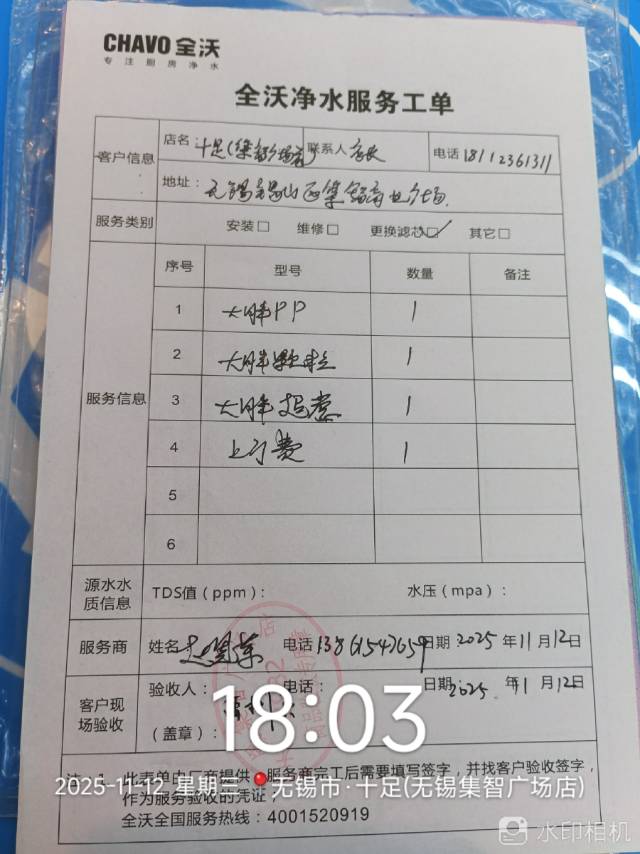 CHAVO 全沃
专注厨房净水
全沃净水服务工单
客户信息
店名 十足(集智广场店) 联系人 店长 电话 18112361311
地址: 无锡锡山区集智商业广场
服务类别 安装□ 维修□ 更换滤芯□✓ 其它□
服务信息
序号 型号 数量 备注
1 大胖PP 1
2 大胖颗粒 1
3 大胖 1
4 上门费 1
5
6
源水水质信息 TDS值(ppm): 水压(mpa):
服务商 姓名 电话 13861547659 日期: 2025 年 11 月 12 日
客户现场验收 验收人: 电话: 日期: 2025 年 11 月 12 日
(盖章):
18:03
注: 1、此表单由厂商提供,服务商完工后需要填写签字,并找客户验收签字,
作为服务验收的凭证;
2025-11-12 星期三 无锡市·十足(无锡集智广场店)
全沃全国服务热线: 4001520919
水印相机